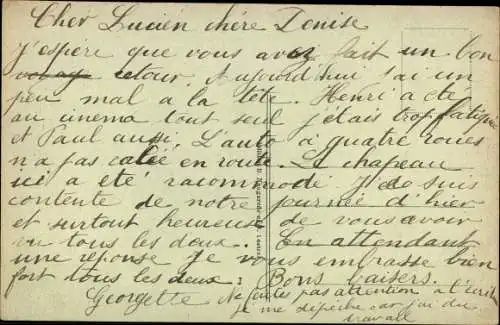 Cher Lucien chère Denise
J'espère que vous avez fait un bon
voyage retour. Aujourd'hui j'ai un
peu mal a la tête. Henri a été
au cinema tout seul j'etais trop fatiguée
et Paul aussi. L'auto a quatre roues
n'a pas calée en route. Le chapeau
ici a été racommodé. Je suis
contente de notre journée d'hier
et surtout heureuse de vous avoir
vu tous les deux. En attendant
une reponse je vous embrasse bien
fort tous les deux. Bons baisers.
Georgette Ne faites pas attention a l'écrit
je me dépêche car j'ai du
travail